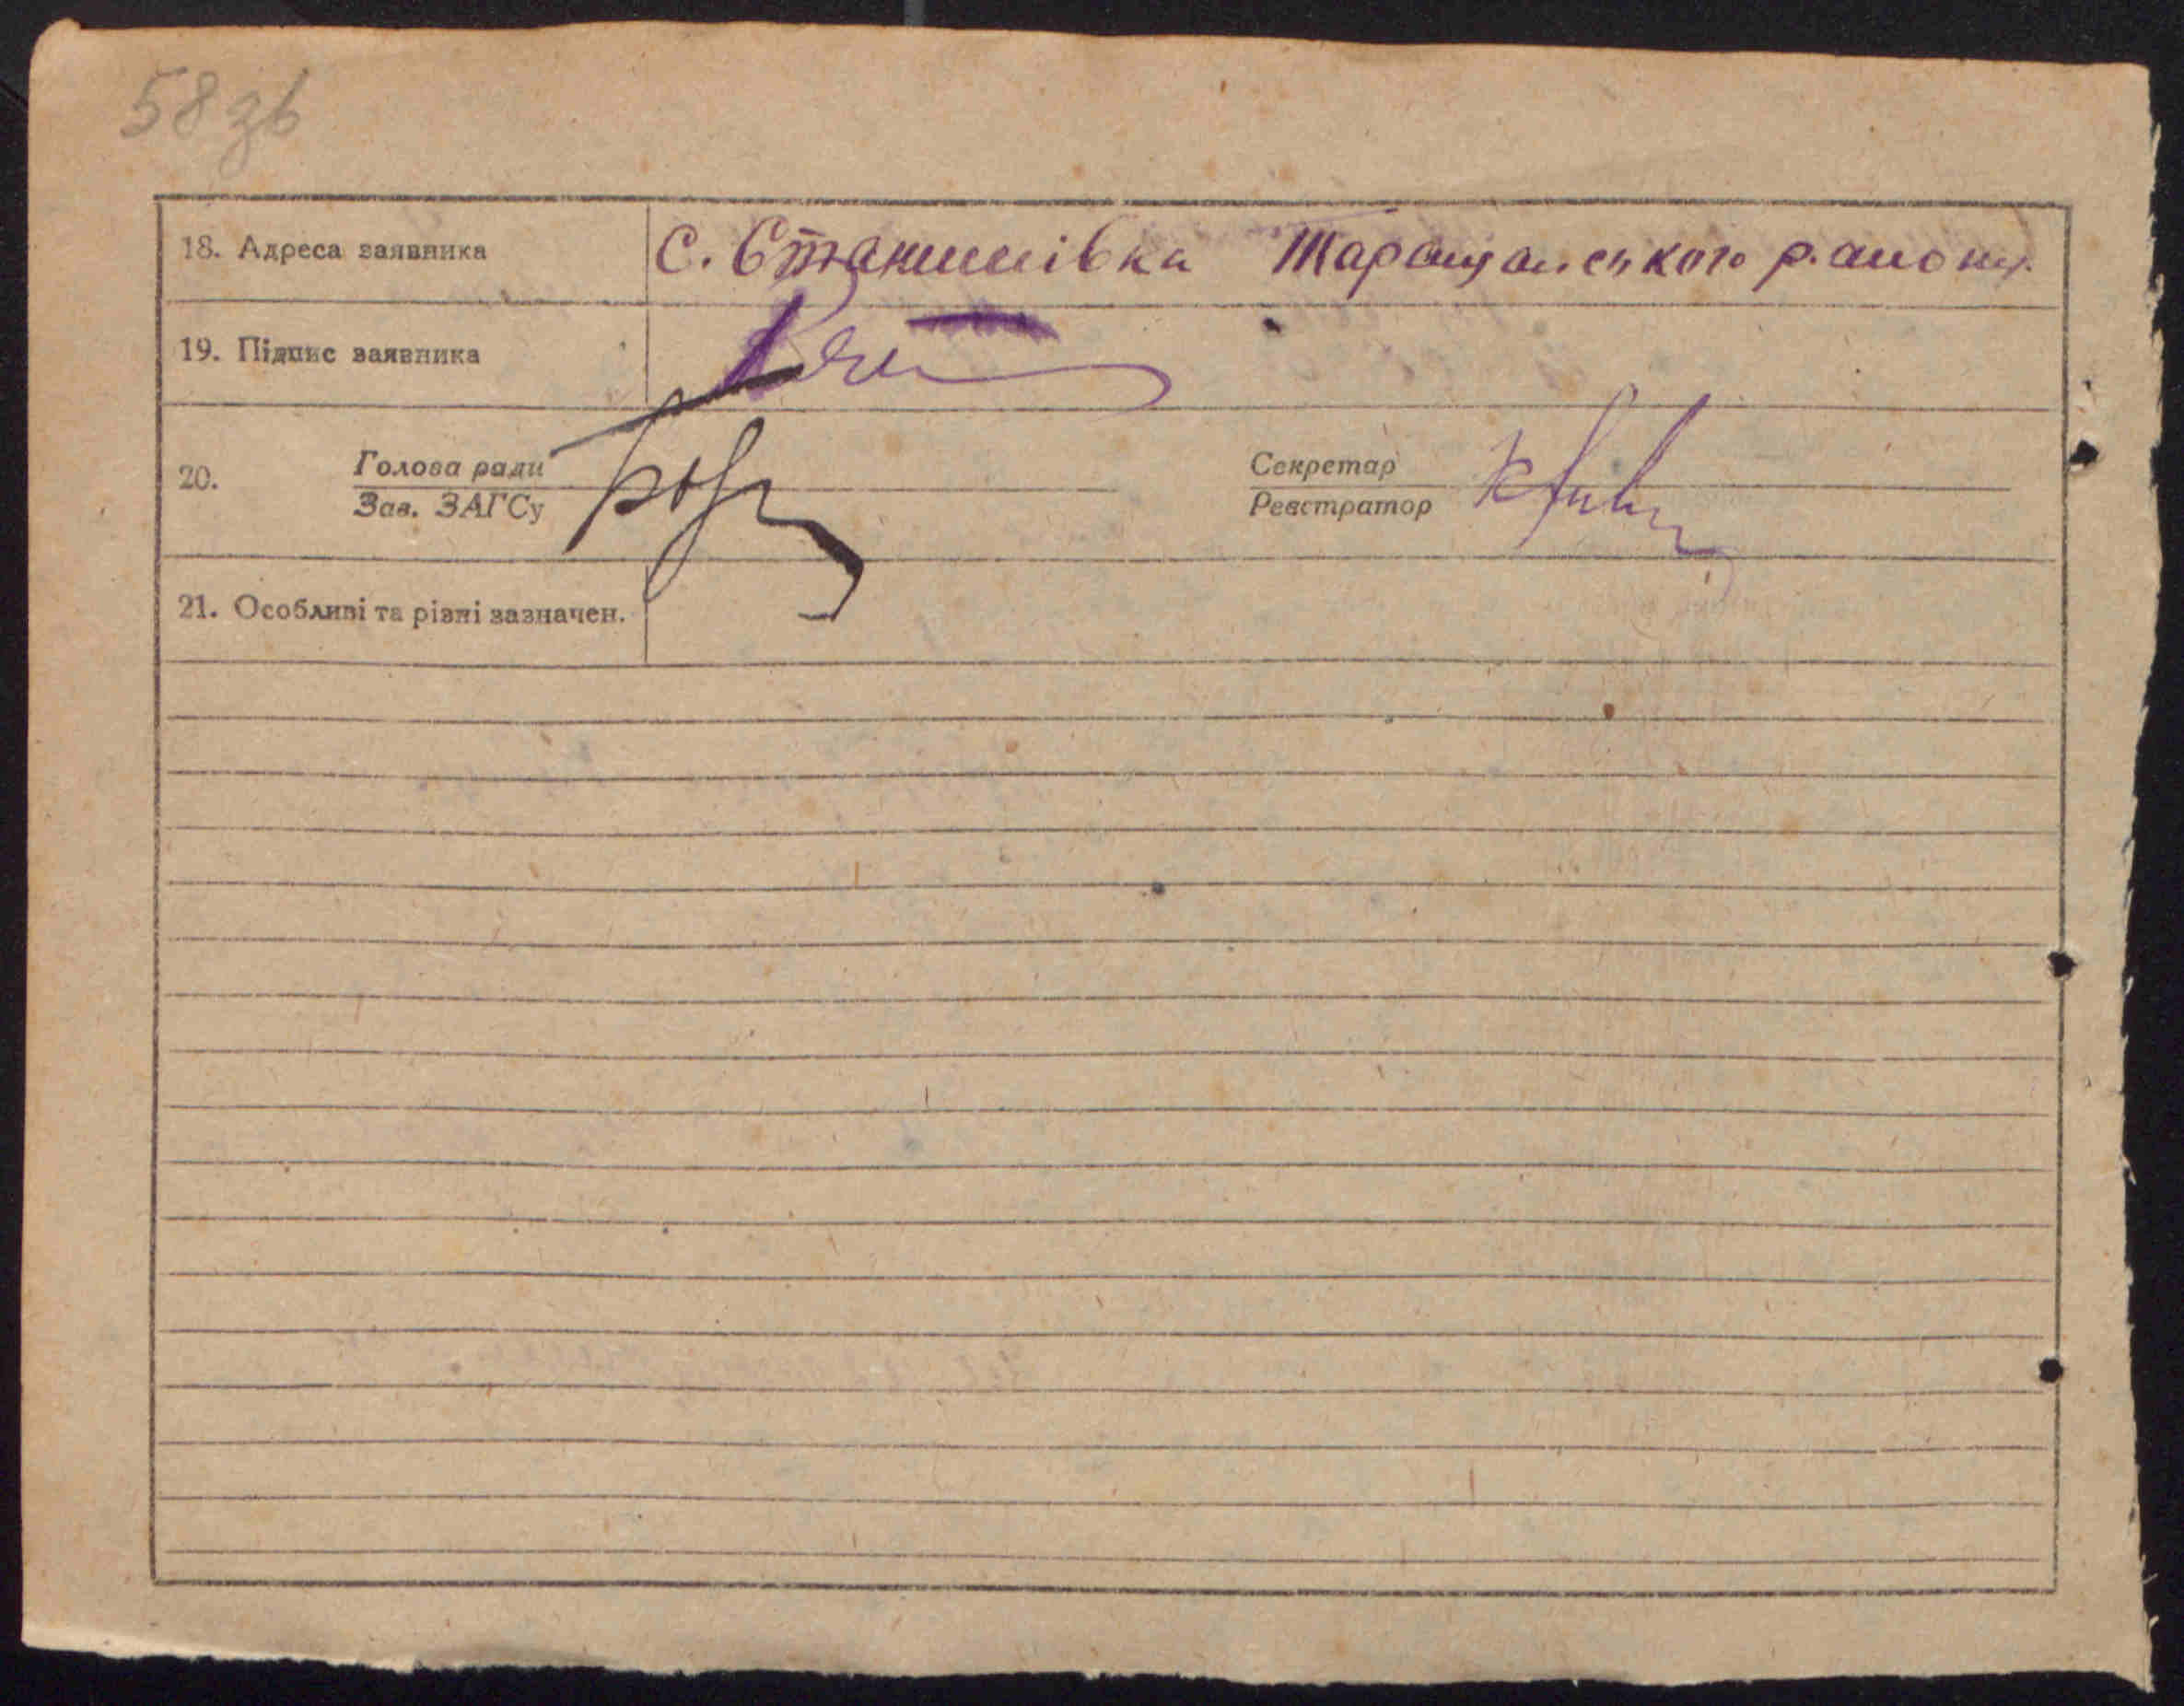 58зв
18. Адреса заявника С. Станишівка Таращанського району.
19. Підпис заявника
20. Голова ради Секретар
Зав. ЗАГСу Реєстратор
21. Особливі та різні зазначен.